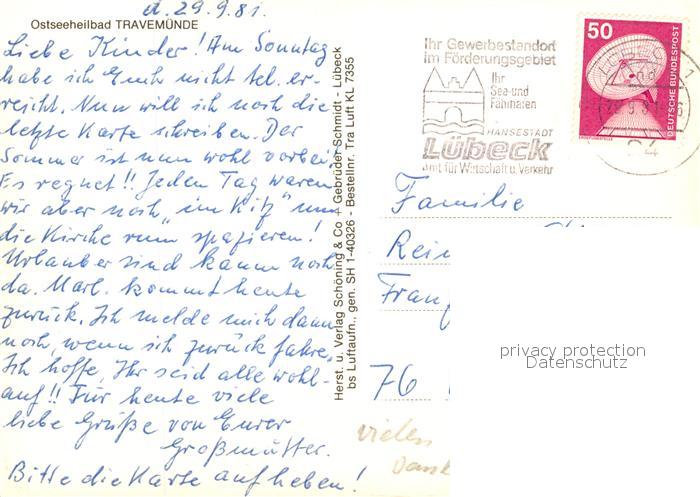 d. 29.9.81.
Ostseeheilbad TRAVEMÜNDE
Liebe Kinder! Am Sonntag
habe ich Euch nicht tel. er-
reicht. Nun will ich noch die
letzte Karte schreiben. Der
Sommer ist nun wohl vorbei.
Es regnet!! Jeden Tag waren
wir aber noch "im Kitz" und
die Kirche rum spazieren!
Urlauber sind kaum noch
da. Marl. kommt heute
zurück. Ich melde mich dann
noch, wenn ich zurück fahre.
Ich hoffe, Ihr seid alle wohl-
auf!! Für heute viele
liebe Grüße von Eurer
Großmutter.
Bitte die Karte aufheben!
Herst. u. Verlag Schöning & Co + Gebrüder Schmidt - Lübeck
bs Luftaufn., gen. SH 1-40326 - Bestellnr. Tra Luft KL 7355
Ihr Gewerbestandort
im Förderungsgebiet
Ihr
See-und
Fährhafen
HANSESTADT
Lübeck
Amt für Wirtschaft u. Verkehr
50
DEUTSCHE BUNDESPOST
Familie
Rei
Fran
76
vielen
Dank
privacy protection
Datenschutz